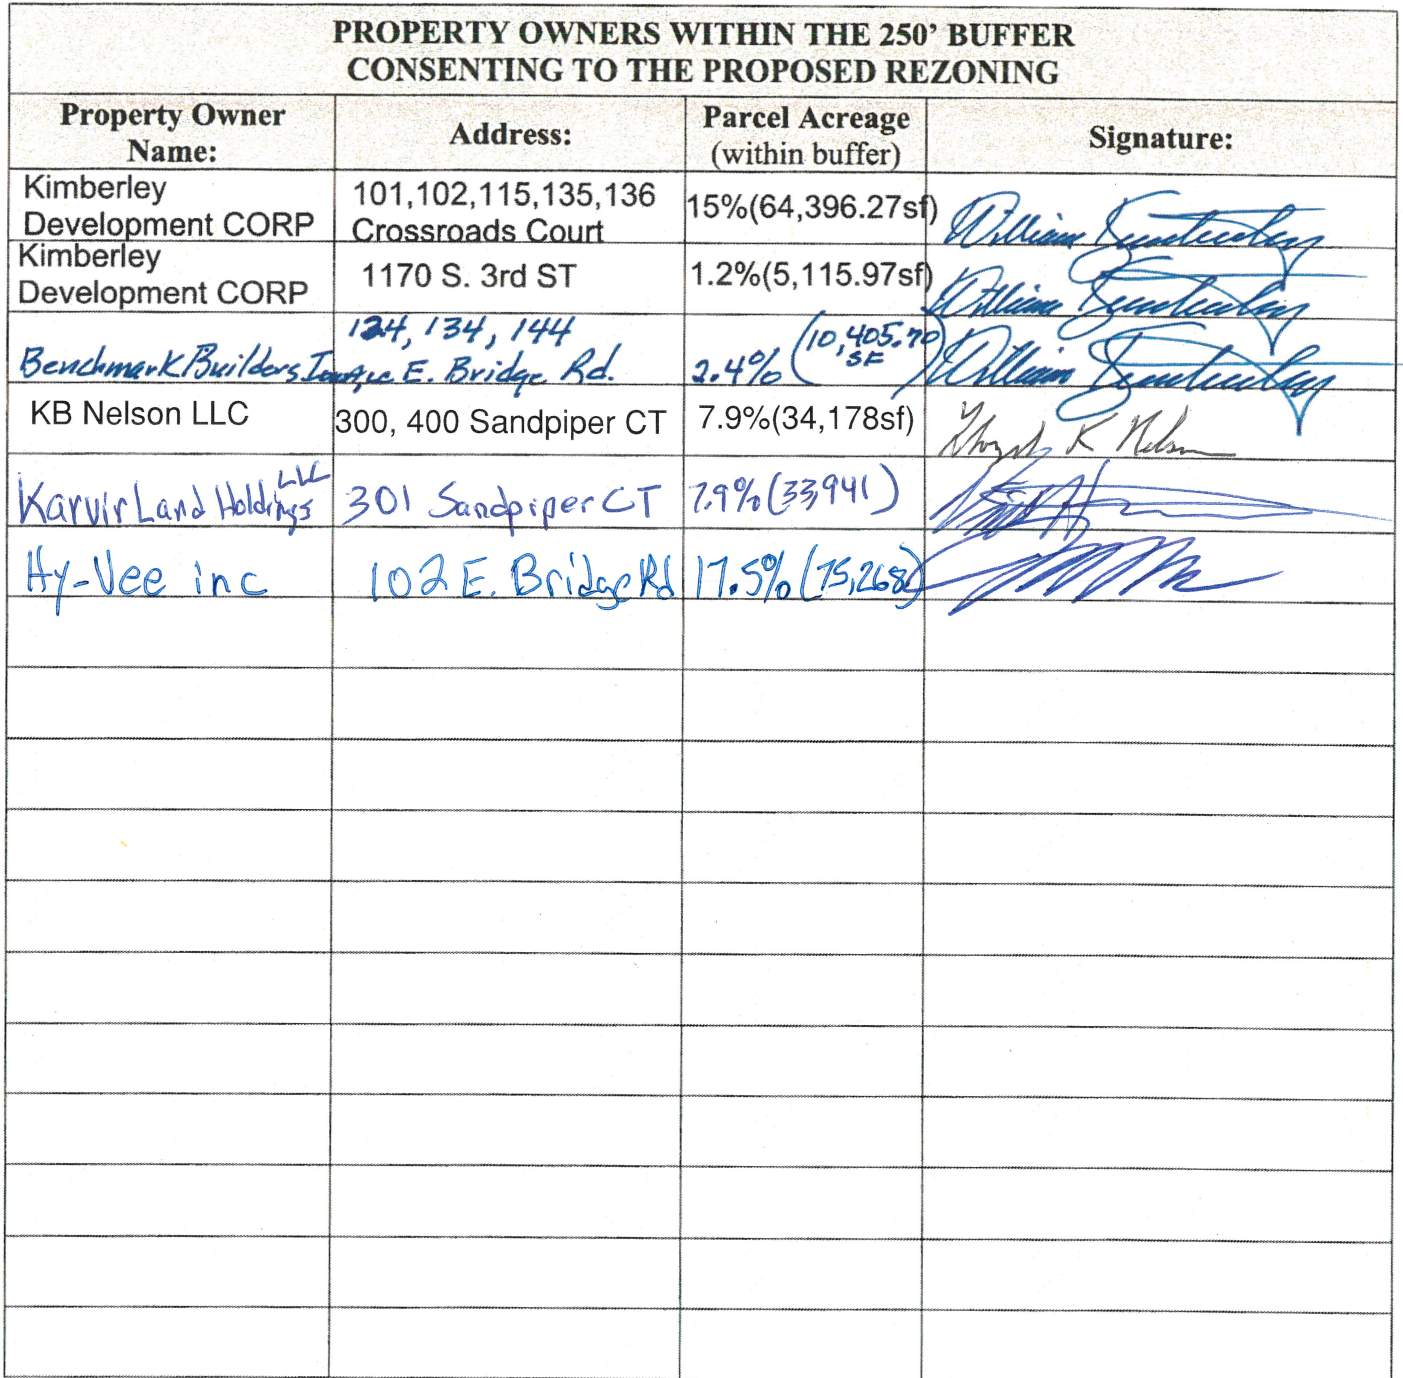 PROPERTY OWNERS WITHIN THE 250' BUFFER
CONSENTING TO THE PROPOSED REZONING
Property Owner
Name:
Address:
Parcel Acreage
(within buffer)
Signature:
Kimberley
Development CORP
101,102,115,135,136
Crossroads Court
15%(64,396.27sf)
William
Kimberley
Development CORP
1170 S. 3rd ST
1.2%(5,115.97sf)
William
Benchmark Builders
124, 134, 144
E. Bridge Rd.
2.4% (10,405.70
SF)
William
KB Nelson LLC
300, 400 Sandpiper CT
7.9%(34,178sf)
K Nelson
Karvir Land Holdings LLC
301 Sandpiper CT
7.9% (33,941)
Hy-Vee inc
102 E. Bridge Rd
17.5% (75,268)